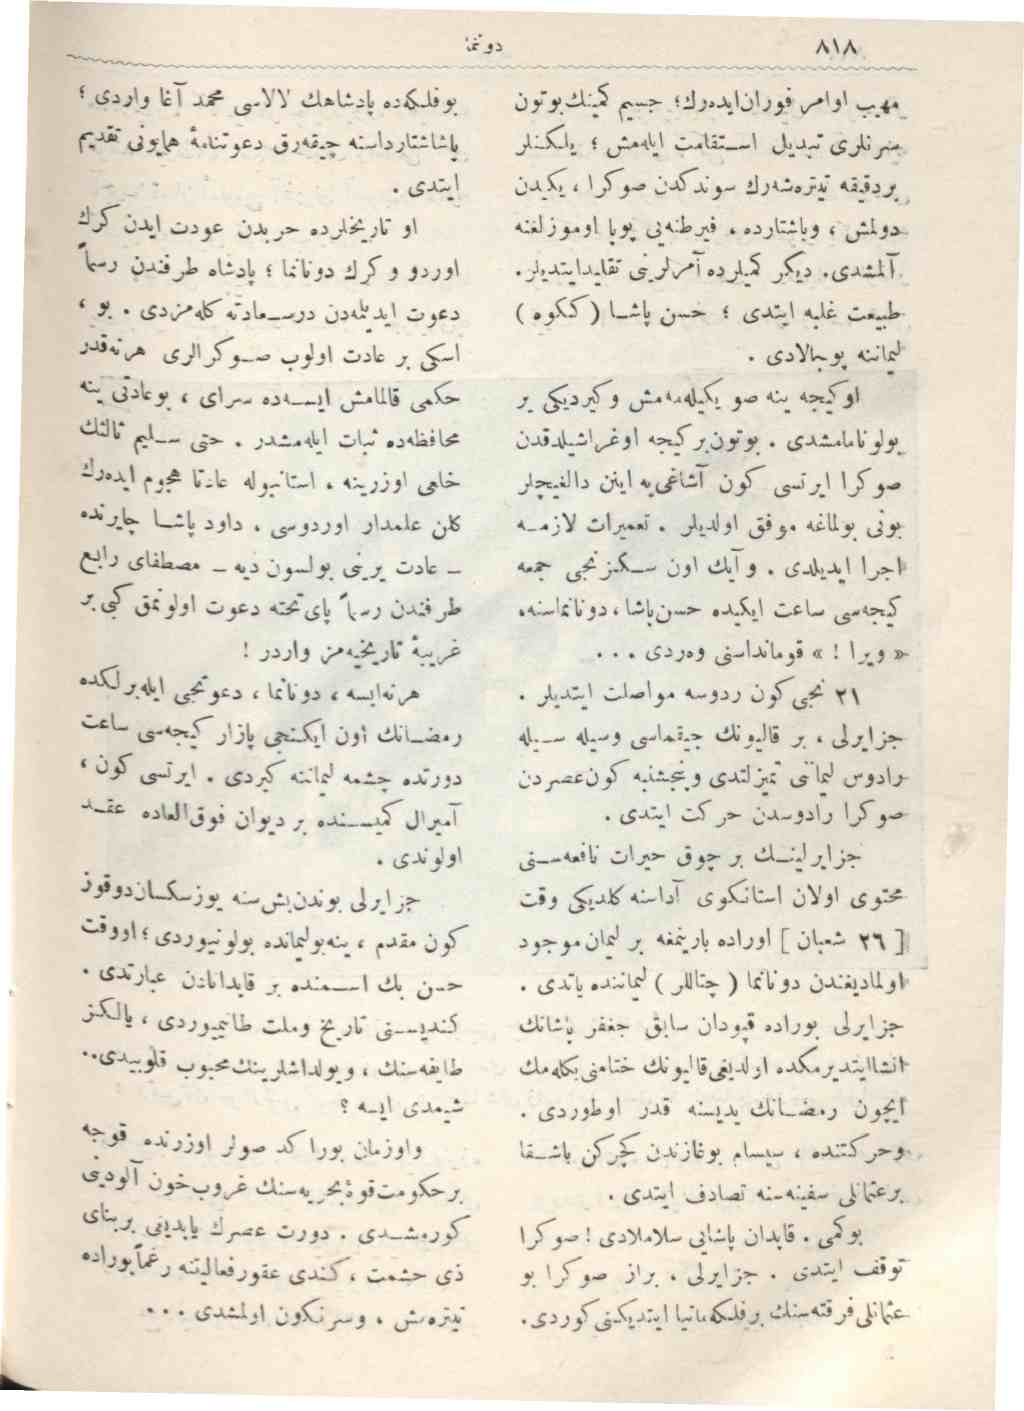 ٨١٨
دوننما
مهیب اوامر فوران ایده‌رك؛ جسیم كمینك بوتون
سرنلری تبدیل استقامت ایله‌مش ؛ یلكنلر
بردقیقه تیتره‌شه‌رك سوندكدن صوكرا ، یكیدن
دولمش ، وباشتارده ، فیرطنه‌یی پوپا اوموزلغنه
آلمشدی. دیكر كمیلرده آمرلرینی تقلیدایتدیلر.
طبیعت غلبه ایتدی ؛ حسن پاشا ( ككوه )
لیماننه پویالادی .
او كیجه ینه صو یكیله‌مه‌مش و كیردیكی یر
بولونامامشدی . بوتون بر كیجه اوغراشیلدقدن
صوكرا ایرتسی كون آشاغی‌یه اینن دالغیجلر
بونی بولماغه موفق اولدیلر . تعمیرات لازمه
اجرا ایدیلدی . و آیك اون سكزنجی جمعه
كیجه‌سی ساعت ایكیده حسن پاشا ، دونانماسنه،
« ویرا ! » قومانداسنی وه‌ردی ...
٢١ نجی كون ردوسه مواصلت ایتدیلر .
جزایرلی ، بر قالیونك چیقماسی وسیله سیله
رادوس لیماننی تمیزلتدی و پنجشنبه كون عصردن
صوكرا رادوسدن حركت ایتدی .
جزایرلینك بر چوق خیرات نافعه‌سنی
محتوی اولان استانكوی آداسنه كلدیكی وقت
[ ٢٦ شعبان ] اوراده بارینمغه بر لیمان موجود
اولمادیغندن دونانما ( چتاللر ) لیماننده یاتدی .
جزایرلی بوراده قپودان سابق جعفر پاشانك
انشاایتدیرمكده اولدیغی قالیونك ختامنی بكله‌مك
ایچون رمضانك یدیسنه قدر اوطوردی .
وحركتنده ، سیسام بوغازندن كچركن باشقا
برعثمانلی سفینه‌سنه تصادف ایتدی .
بوكمی . قاپدان پاشایی سلاملادی ! صوكرا
توقف ایتدی . جزایرلی ، براز صوكرا بو
عثمانلی فرقته‌سنك برفلكه ماتیا ایتدیكنی كوردی.
بوفلكه‌ده پادشاهك لالاسی محمد آغا واردی ؛
پاشاشتارداسنه چیقه‌رق دعوتنامهٔ همایونی تقدیم
ایتدی .
او تاریخلرده حربدن عودت ایدن كرك
اوردو و كرك دونانما ؛ پادشاه طرفندن رسماً
دعوت ایدیلمه‌دن درسعادته كله‌مزدی . بو ،
اسكی بر عادت اولوب صوكرالری هرنه‌قدر
حكمی قالمامش ایسه‌ده سرای ، بوعادتی ینه
محافظه‌ده ثبات ایله‌مشدر . حتی سلیم ثالثك
خلعی اوزرینه ، استانبوله عادتا هجوم ایده‌رك
كلن علمدار اوردوسی ، داود پاشا چایرنده
ـ عادت یرینی بولسون دیه ـ مصطفای رابع
طرفندن رسماً پای تخته دعوت اولونمق كبی بر
غریبهٔ تاریخیه‌مز واردر !
هرنه‌ایسه ، دونانما ، دعوتجی ایله برلكده
رمضانك اون ایكنجی پازار كیجه‌سی ساعت
دورتده چشمه لیماننه كیردی . ایرتسی كون ،
آمیرال كمیسنده بر دیوان فوق‌العاده عقد
اولوندی .
جزایرلی بوندن بش سنه یوزسكسان دوقوز
كون مقدم ، ینه بولیمانده بولونیوردی ؛ اووقت
حسن بك اسمنده بر قاپداناندن عبارتدی .
كندیسنی تاریخ وملت طانیمیوردی ، یالكز
طایفه‌سنك ، ویولداشلرینك محبوب قلوبیدی..
شیمدی ایسه ؟
واوزمان بورا كد صولر اوزرنده قوجه
برحكومت قوهٔ بحریه‌سنك غروب خون آلودینی
كورمشدی . دورت عصرك یاپدیغی بربنای
ذی حشمت ، كندی عقورفعالیتنه رغماً بوراده
تیتره‌مش ، وسرنكون اولمشدی ...